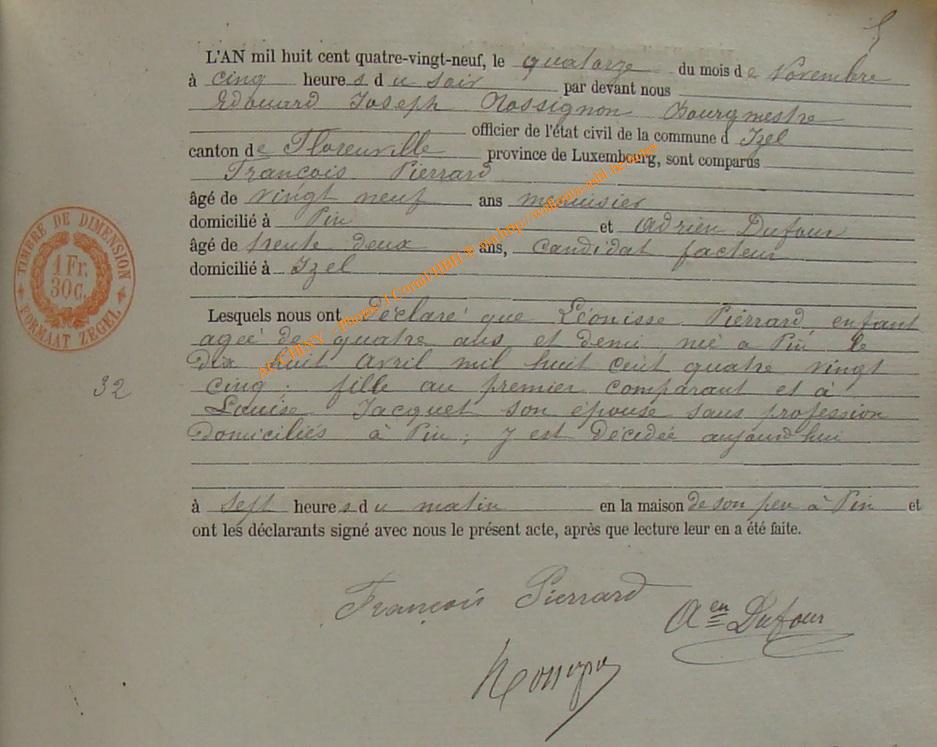 5
L'AN mil huit cent quatre-vingt-neuf, le quatorze du mois de Novembre
à cinq heures du soir par devant nous
Edouard Joseph Rossignon Bourgmestre
officier de l'état civil de la commune d Izel
canton de Florenville province de Luxembourg, sont comparus
François Pierrard
âgé de vingt neuf ans menuisier
domicilié à Pin et Adrien Dufour
âgé de trente deux ans, candidat facteur
domicilié à Izel
TIMBRE DE DIMENSION
1 Fr.
30 C.
FORMAAT ZEGEL
Lesquels nous ont Déclaré que Léonisse Pierrard, enfant
agée de quatre ans et demi née à Pin le
Dix huit Avril mil huit cent quatre vingt
cinq; fille au premier comparant et à
32
Louise Jacquet son épouse sans profession
Domiciliés à Pin; y est Décédée aujourd'hui
à sept heures du matin en la maison de son père à Pin et
ont les déclarants signé avec nous le présent acte, après que lecture leur en a été faite.
François Pierrard
Aen Dufour
Rossignon